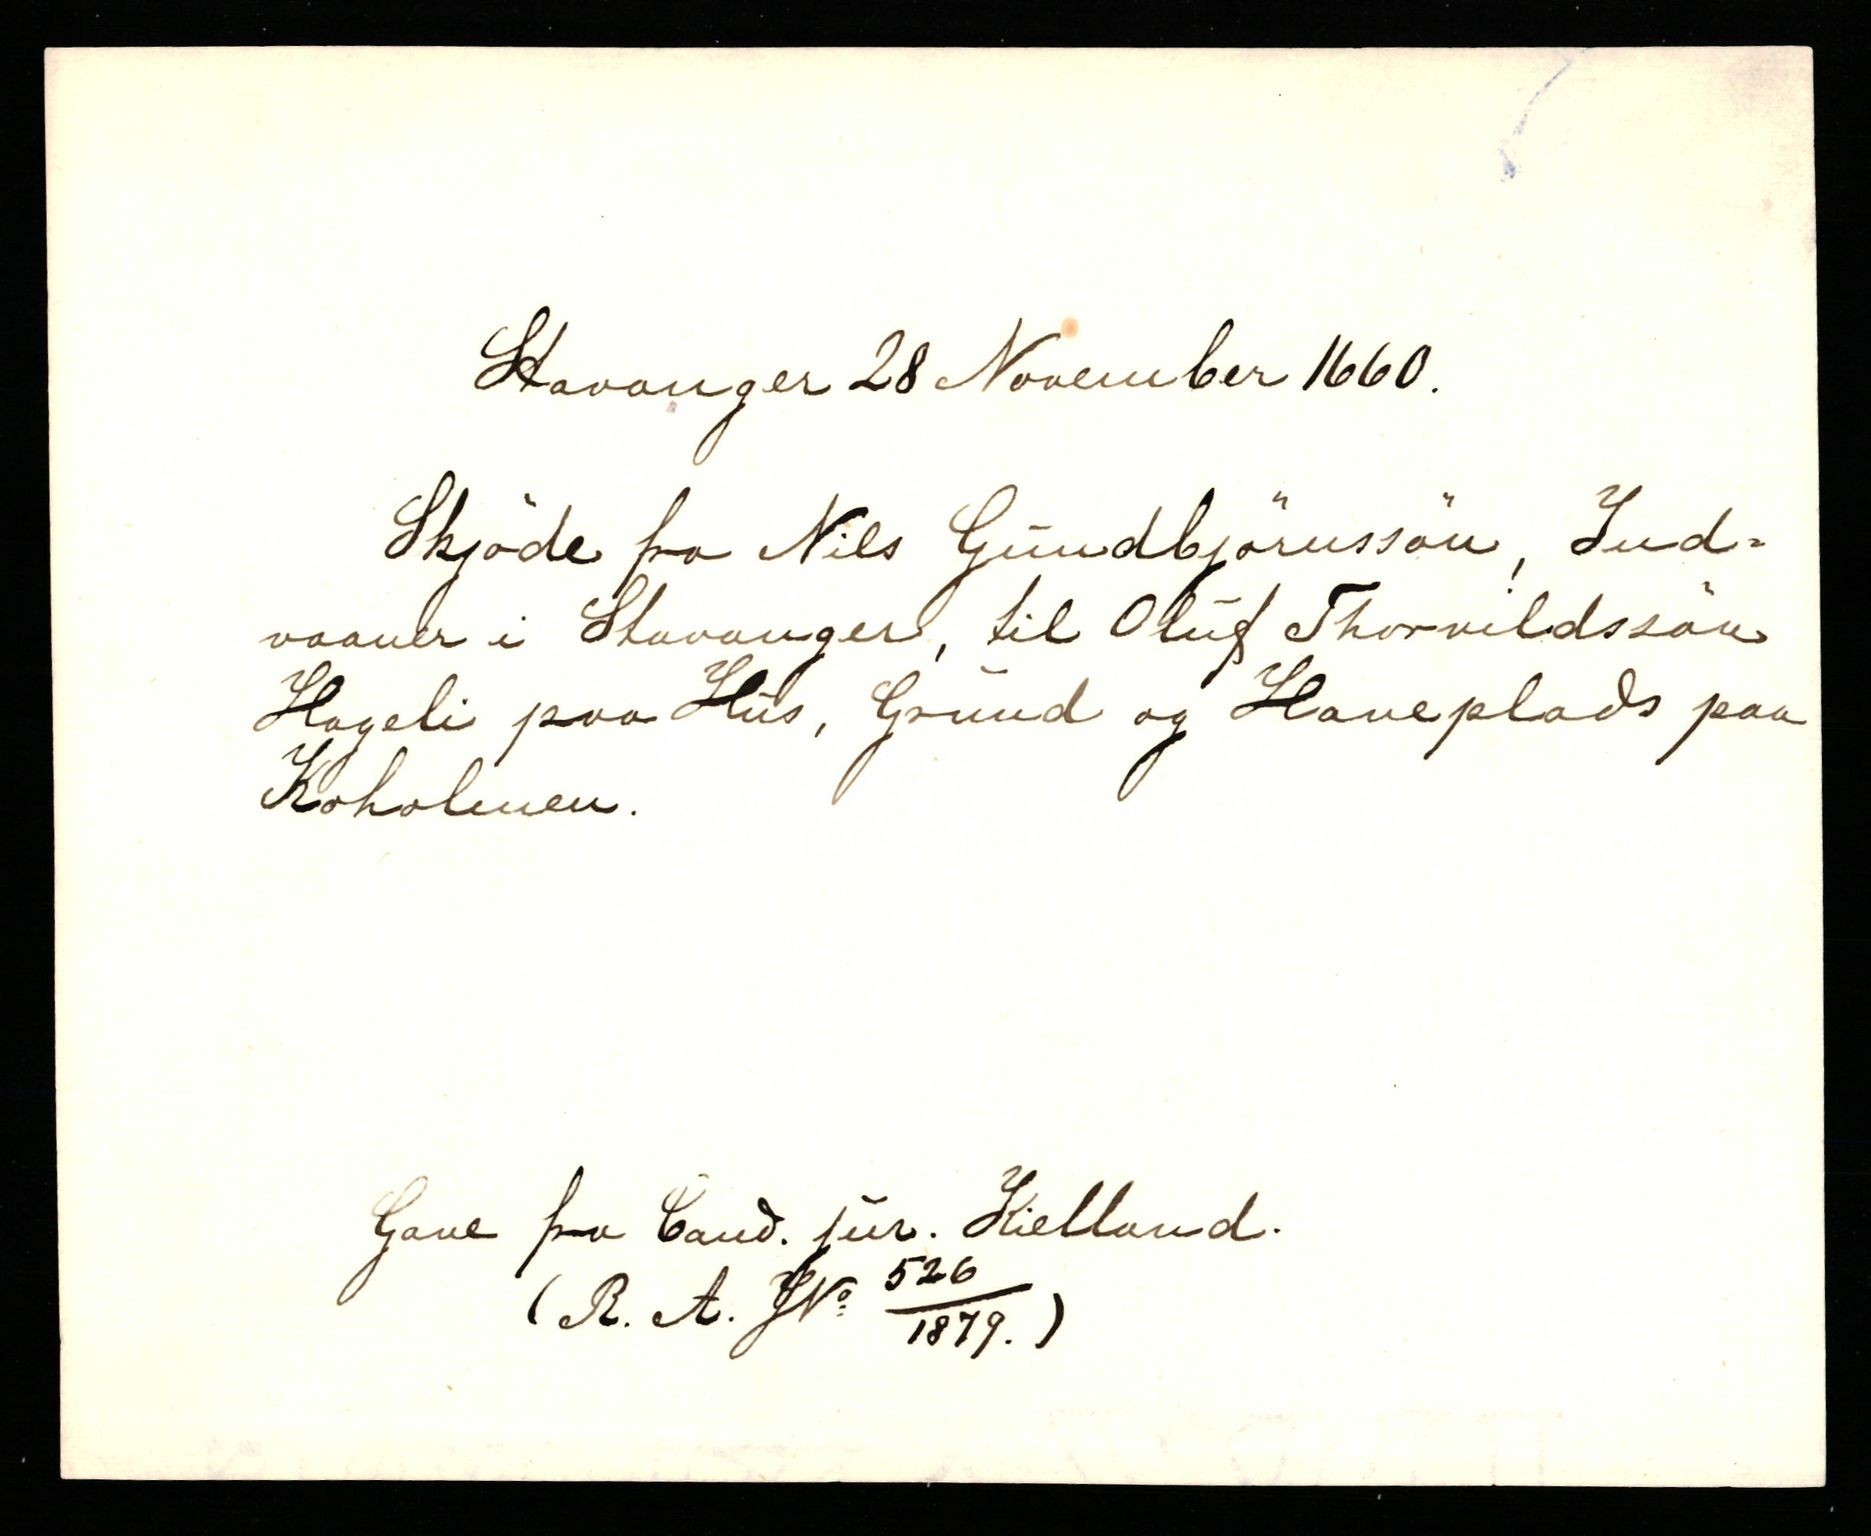 Stavanger 28 November 1660.
Skjöde fra Nils Gundbjörnssön, Ind-
vaaner i Stavanger, til Oluf Thorvildssön
Hageli paa Hus, Grund og Haveplads paa
Koholmen.
Gave fra Cand. jur. Kielland.
(R. A. J No 526
1879.)